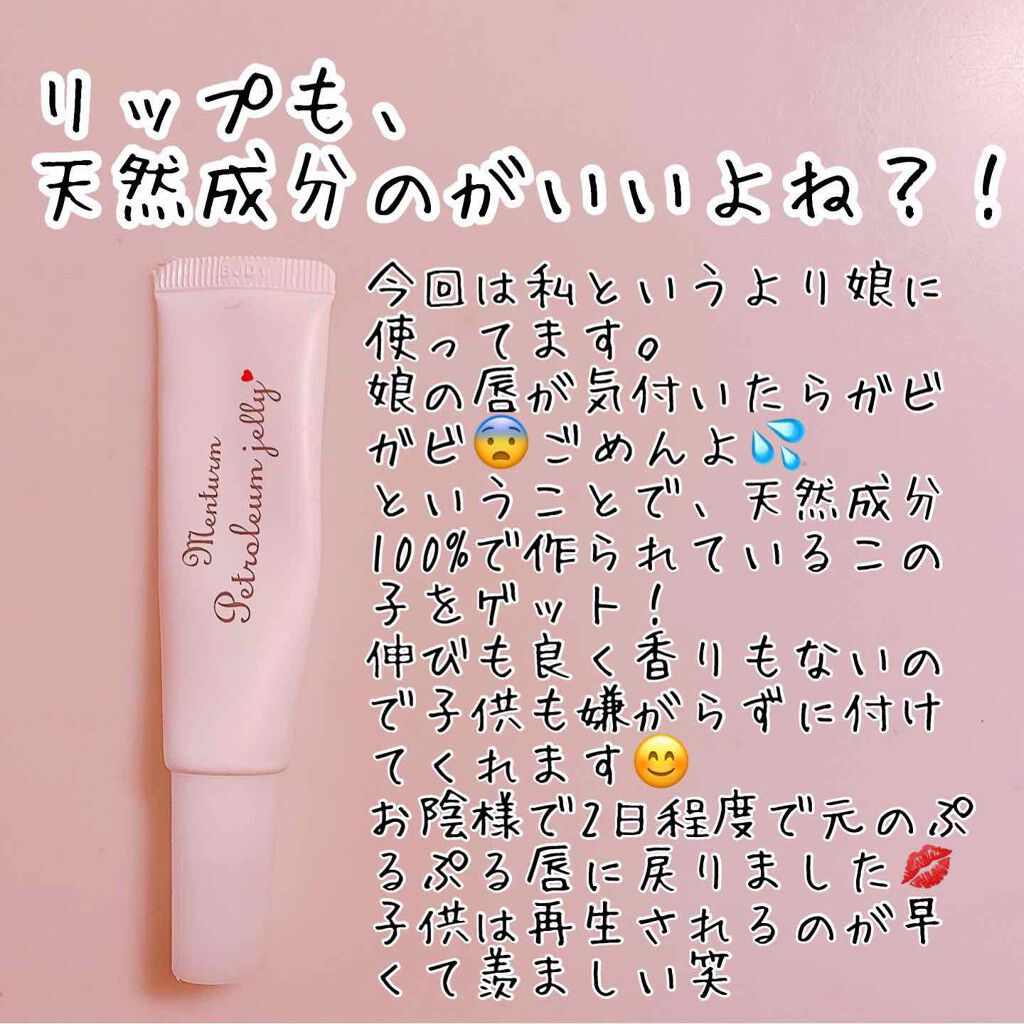 リップも、
天然成分のがいいよね？！
今回は私というより娘に
使ってます。
娘の唇が気付いたらガビ
ガビ😨ごめんよ💦
ということで、天然成分
100%で作られているこの
子をゲット！
伸びも良く香りもないの
で子供も嫌がらずに付け
てくれます😊
お陰様で2日程度で元のぷ
るぷる唇に戻りました💋
子供は再生されるのが早
くて羨ましい笑
Menturm
Petroleum jelly